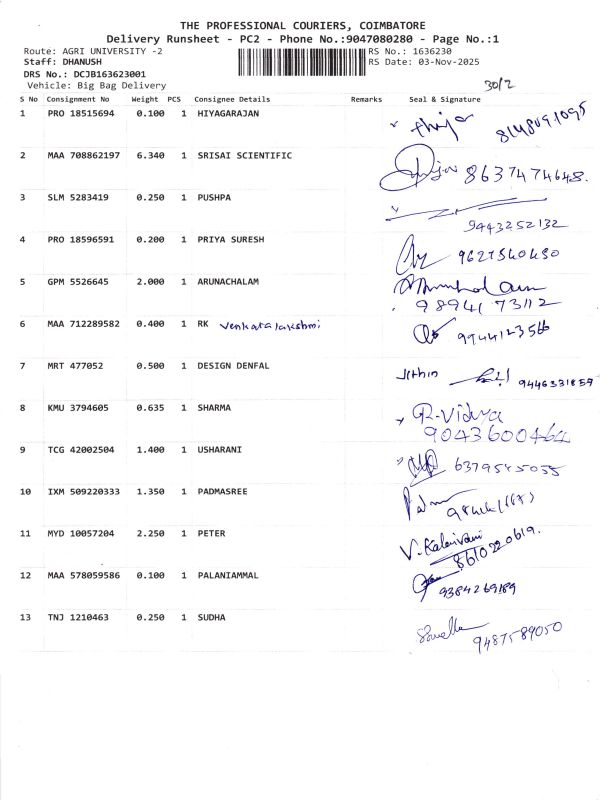 THE PROFESSIONAL COURIERS, COIMBATORE
Delivery Runsheet - PC2 - Phone No.:9047080280 - Page No.:1
Route: AGRI UNIVERSITY -2 RS No.: 1636230
Staff: DHANUSH RS Date: 03-Nov-2025
DRS No.: DCJB163623001
Vehicle: Big Bag Delivery 30/2
S No Consignment No Weight PCS Consignee Details Remarks Seal & Signature
1 PRO 18515694 0.100 1 HIYAGARAJAN 8148091095
2 MAA 708862197 6.340 1 SRISAI SCIENTIFIC 8637474648.
3 SLM 5283419 0.250 1 PUSHPA 9443252132
4 PRO 18596591 0.200 1 PRIYA SURESH
5 GPM 5526645 2.000 1 ARUNACHALAM
98941 73112
6 MAA 712289582 0.400 1 RK venkatalakshmi 9944123566
7 MRT 477052 0.500 1 DESIGN DENFAL Jithin 9446331859
8 KMU 3794605 0.635 1 SHARMA R-Vidya
9043600464
9 TCG 42002504 1.400 1 USHARANI 6379545055
10 IXM 509220333 1.350 1 PADMASREE
11 MYD 10057204 2.250 1 PETER V. Kalaivani
8610220619.
12 MAA 578059586 0.100 1 PALANIAMMAL 9384269189
13 TNJ 1210463 0.250 1 SUDHA 9487589050